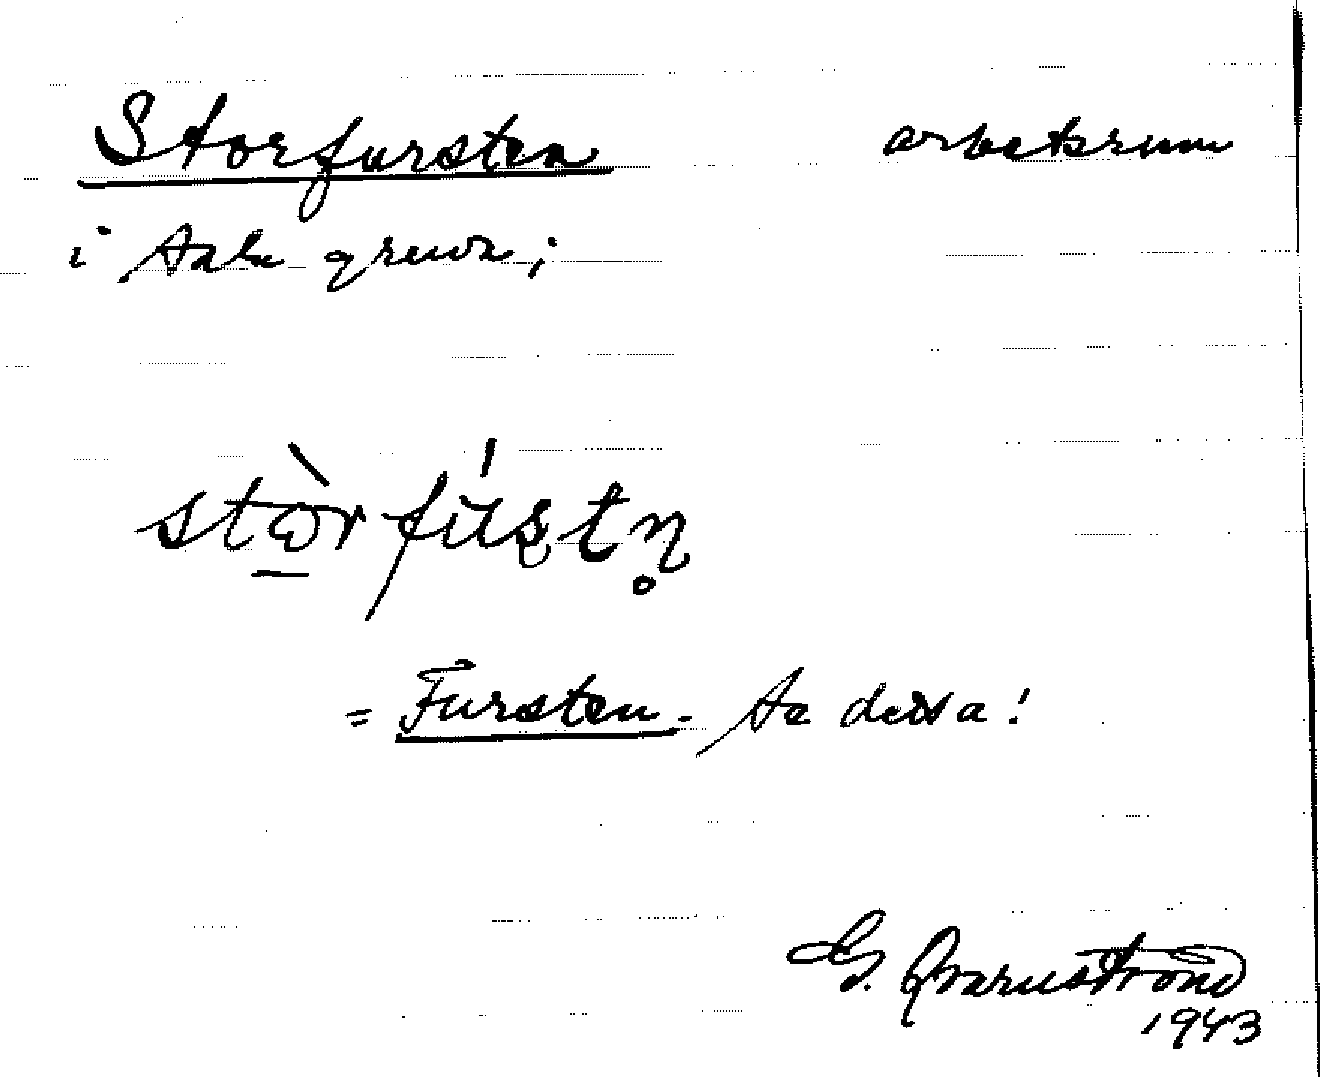 Storfursten arbetsrum
i Sala gruva;
stòrfústn̥
= Fursten. Se dessa!
G. Qvarnström
1943